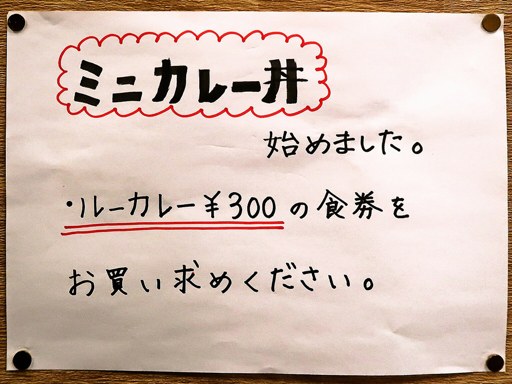 ミニカレー丼
始めました。
・ルーカレー¥300の食券を
お買い求めください。